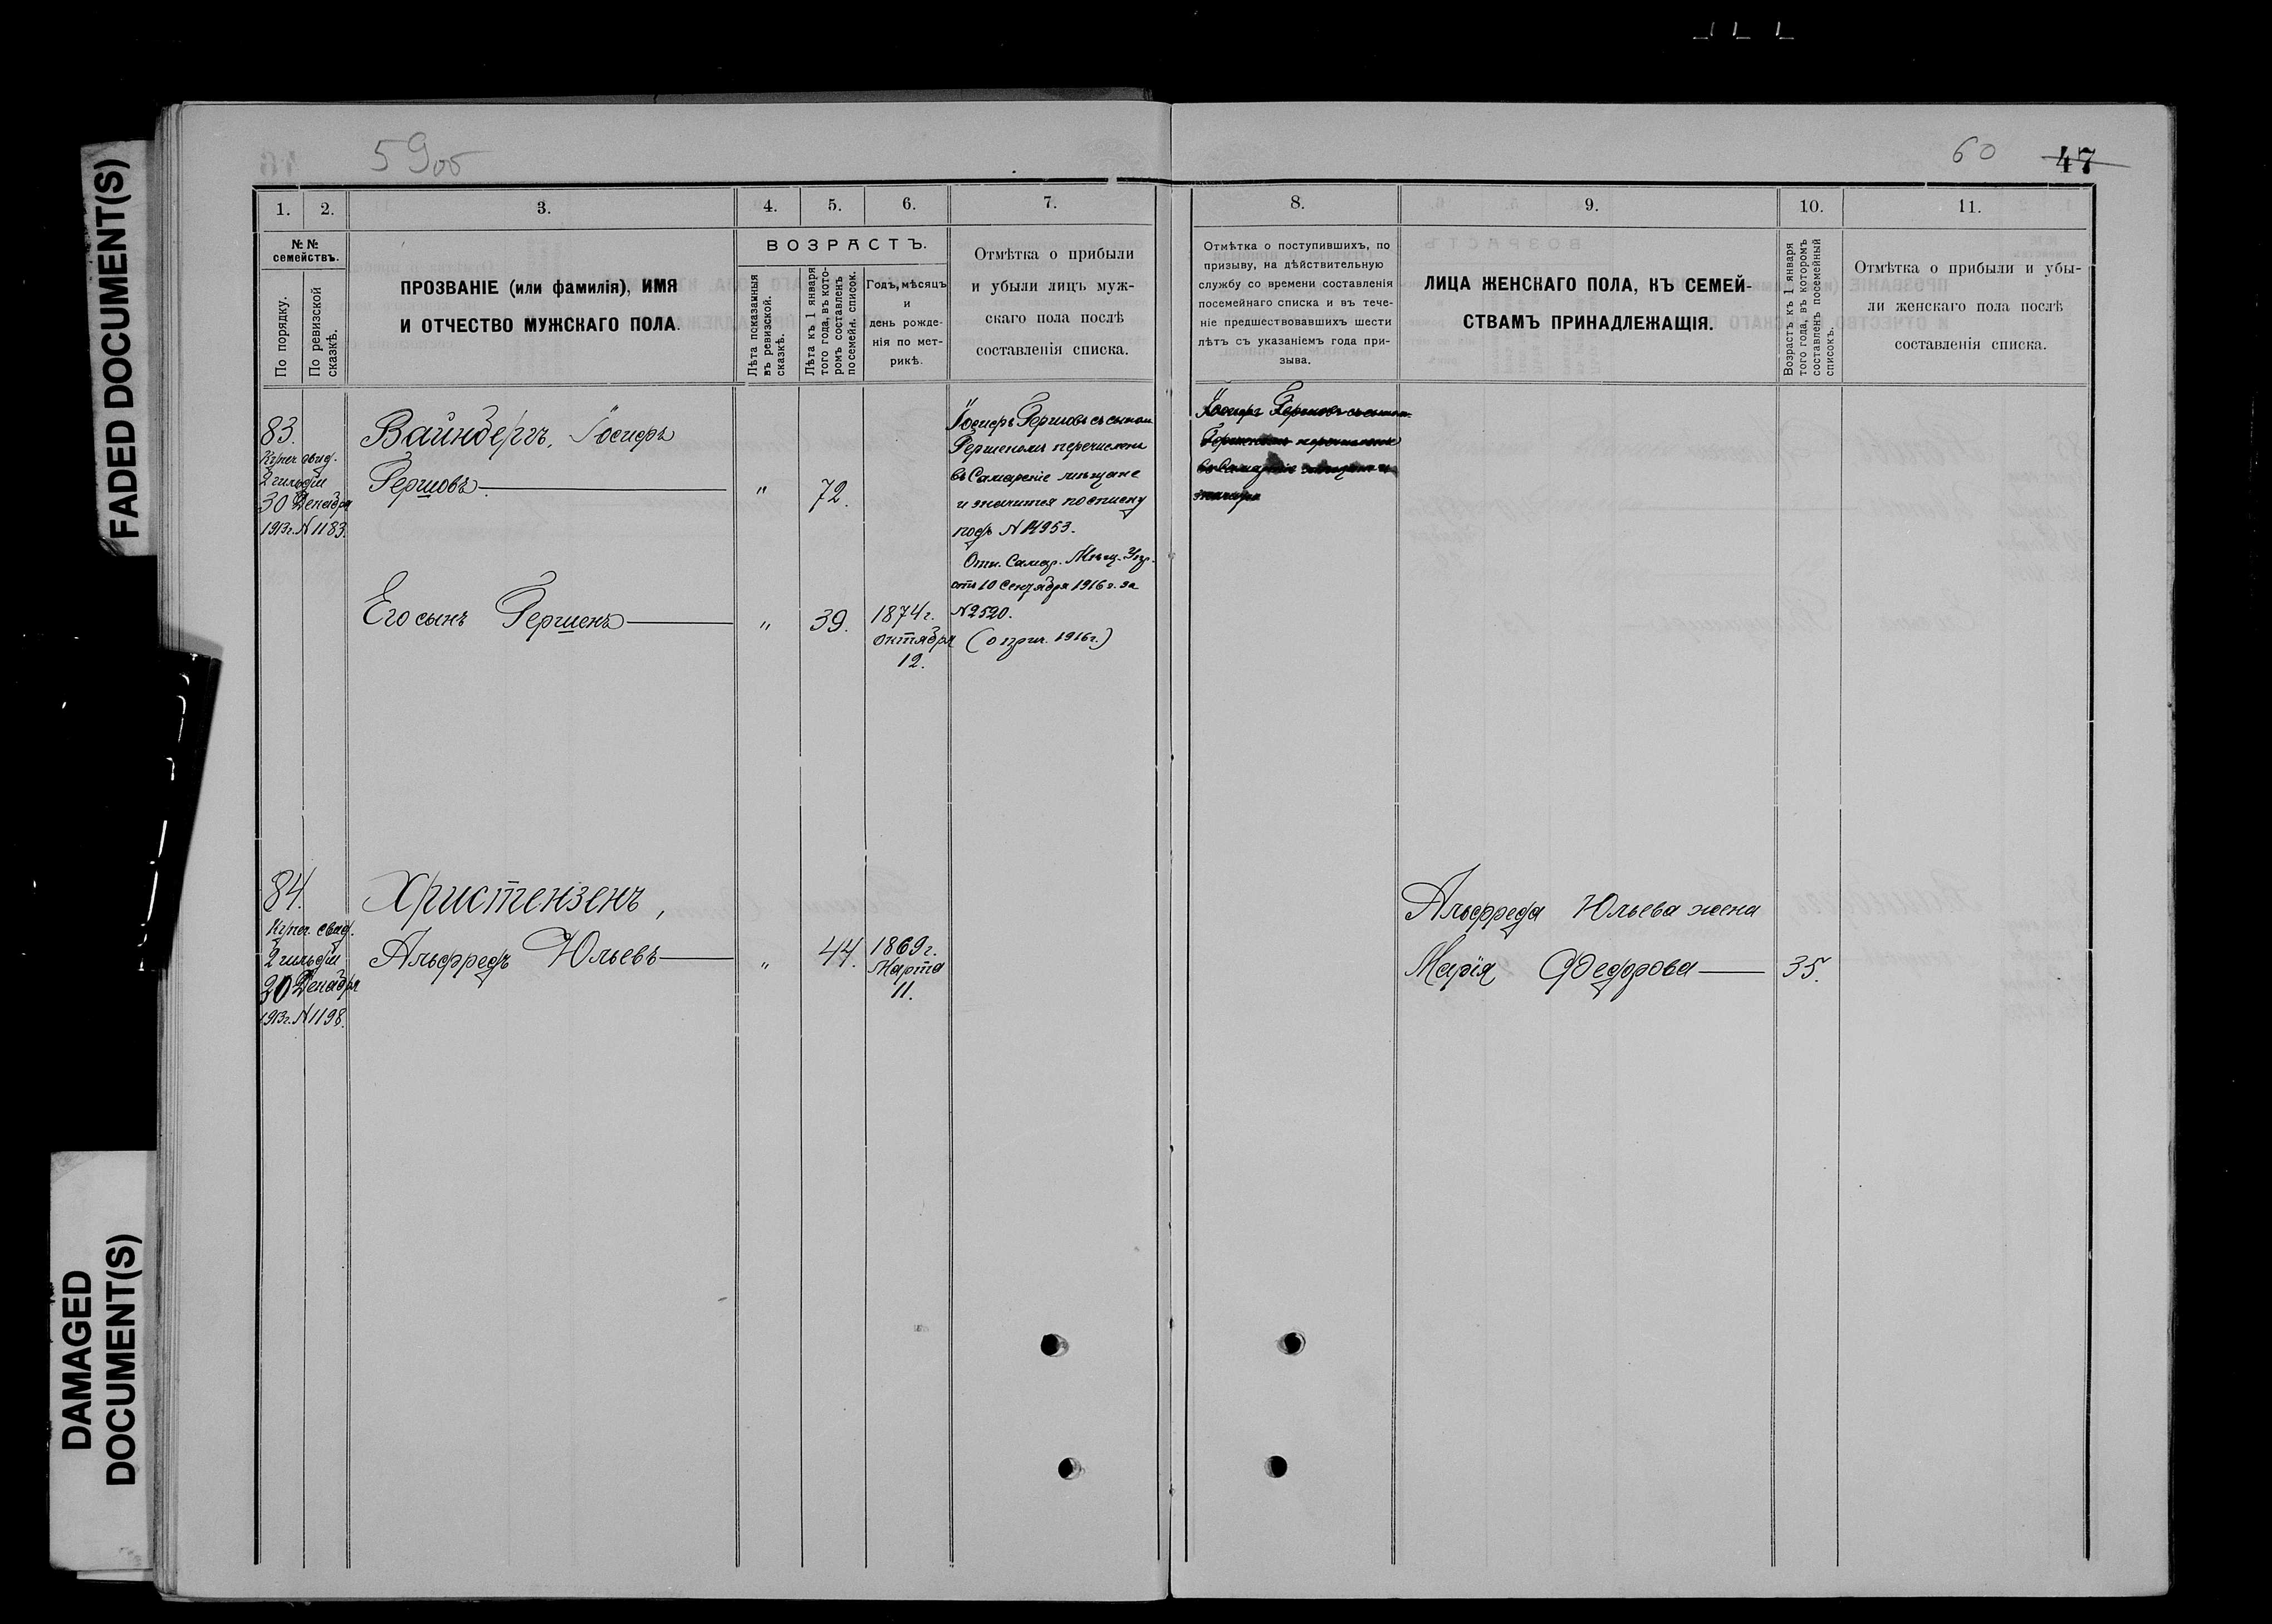 FADED DOCUMENT(S)
DAMAGED
DOCUMENT(S)
59об
60
47
1.
2.
3.
4.
5.
6.
7.
№ №
семействъ.
По порядку.
По ревизской
сказкѣ.
ПРОЗВАНІЕ (или фамилія), ИМЯ
И ОТЧЕСТВО МУЖСКАГО ПОЛА.
ВОЗРАСТЪ.
Лѣта показанныя
въ ревизской.
сказкѣ.
Лѣта къ 1 января
того года, въ кото-
ромъ составленъ
посемейн. списокъ.
Годъ, мѣсяцъ
и
день рожде-
нія по мет-
рикѣ.
Отмѣтка о прибыли
и убыли лицъ муж-
скаго пола послѣ
составленія списка.
83.
Купеч. свид.
2 гильдіи
30 Декабря
1913г. N 1183.
Вайнбергъ, Іосифъ
Гершовъ
"
72.
Іосифъ Гершовъ съ сыномъ
Гершеномъ перечислены
въ Самарскіе мѣщане
и значится по списку
подъ N 14953.
Отн. Самар. Мѣщ. Упр.
отъ 10 Сентября 1916 г. за
N 2520.
(о прич. 1916г.)
Его сынъ Гершенъ
"
39.
1874г.
октября
12.
84.
Купеч. свид.
2 гильдіи
30 Декабря
1913г. N 1198.
Христензенъ,
Альфредъ Юльевъ
"
44.
1869г.
Марта
11.
8.
9.
10.
11.
Отмѣтка о поступившихъ, по
призыву, на дѣйствительную
службу со времени составленія
посемейнаго списка и въ тече-
ніе предшествовавшихъ шести
лѣтъ съ указаніемъ года при-
зыва.
ЛИЦА ЖЕНСКАГО ПОЛА, КЪ СЕМЕЙ-
СТВАМЪ ПРИНАДЛЕЖАЩІЯ.
Возрастъ къ 1 января
того года, въ которомъ
составленъ посемейный
списокъ.
Отмѣтка о прибыли и убы-
ли женскаго пола послѣ
составленія списка.
Іосифъ Гершовъ съ сыном
Гершеномъ перечислены
въ Самарскіе мѣщане и
Альфреда Юльева жена
Марія Федорова
35.